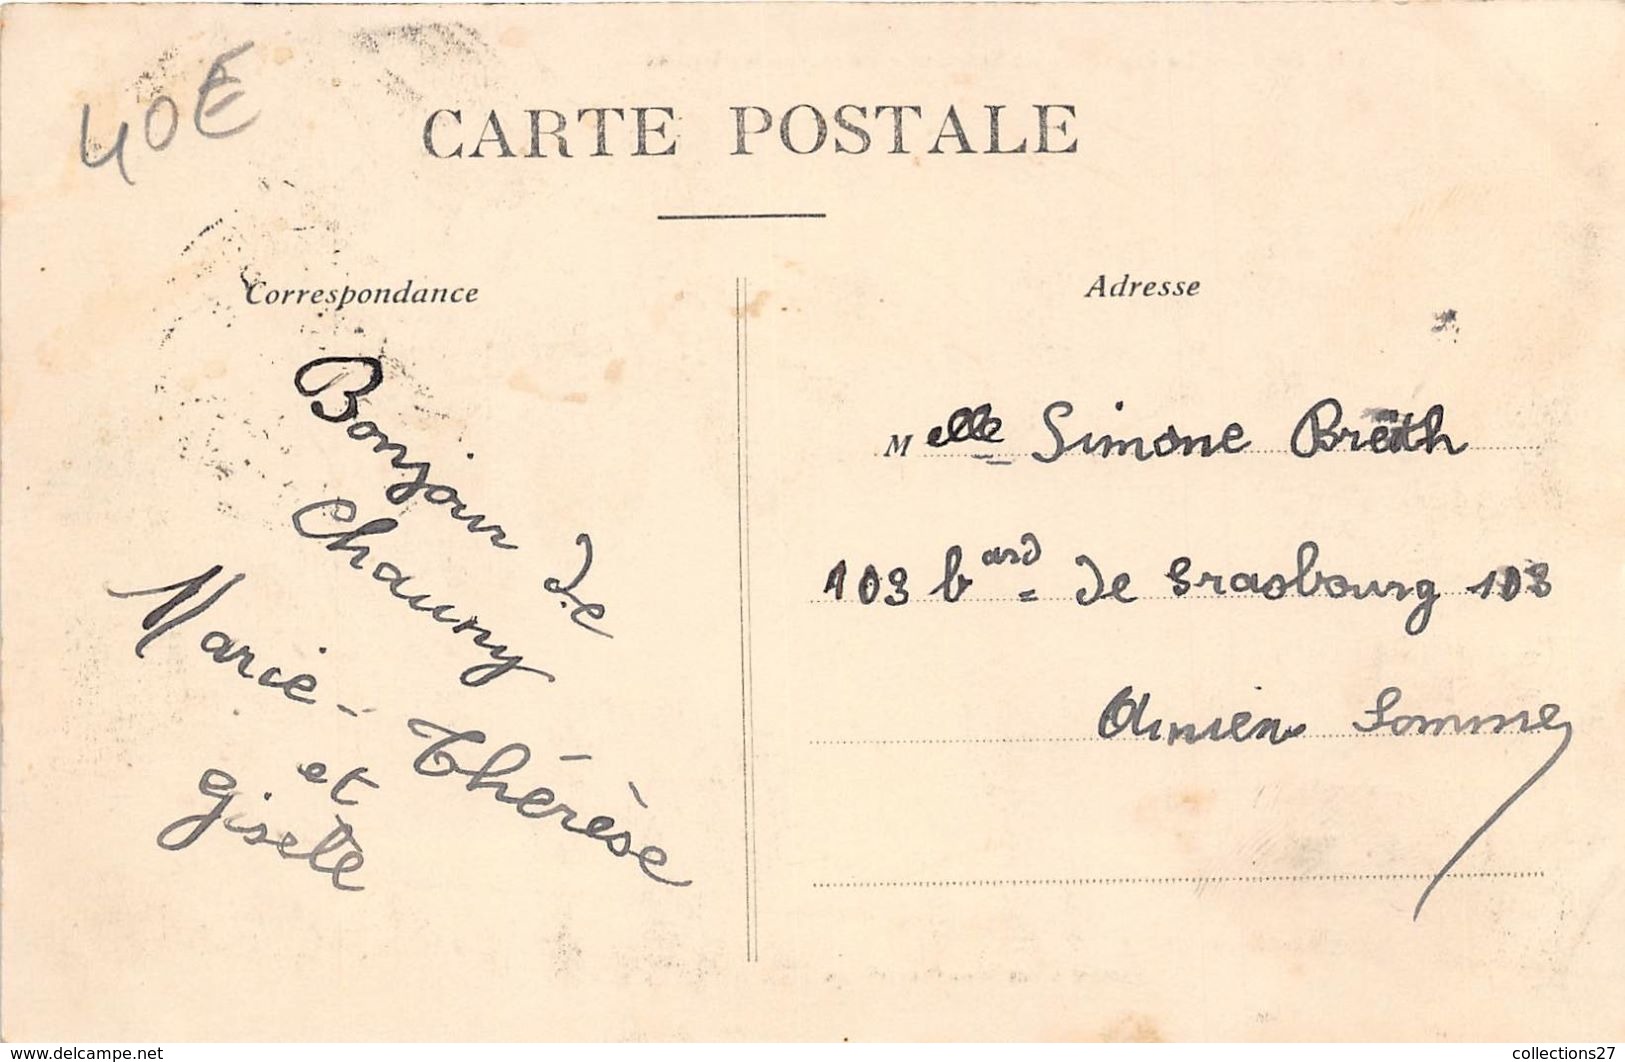 40E
CARTE POSTALE
Correspondance
Adresse
Bonjour de
Chauny
Marie-Thérèse
et
gisele
Melle Simone
103 bard de Srasbourg 103
Amiens Somme
www.delcampe.net
collections27